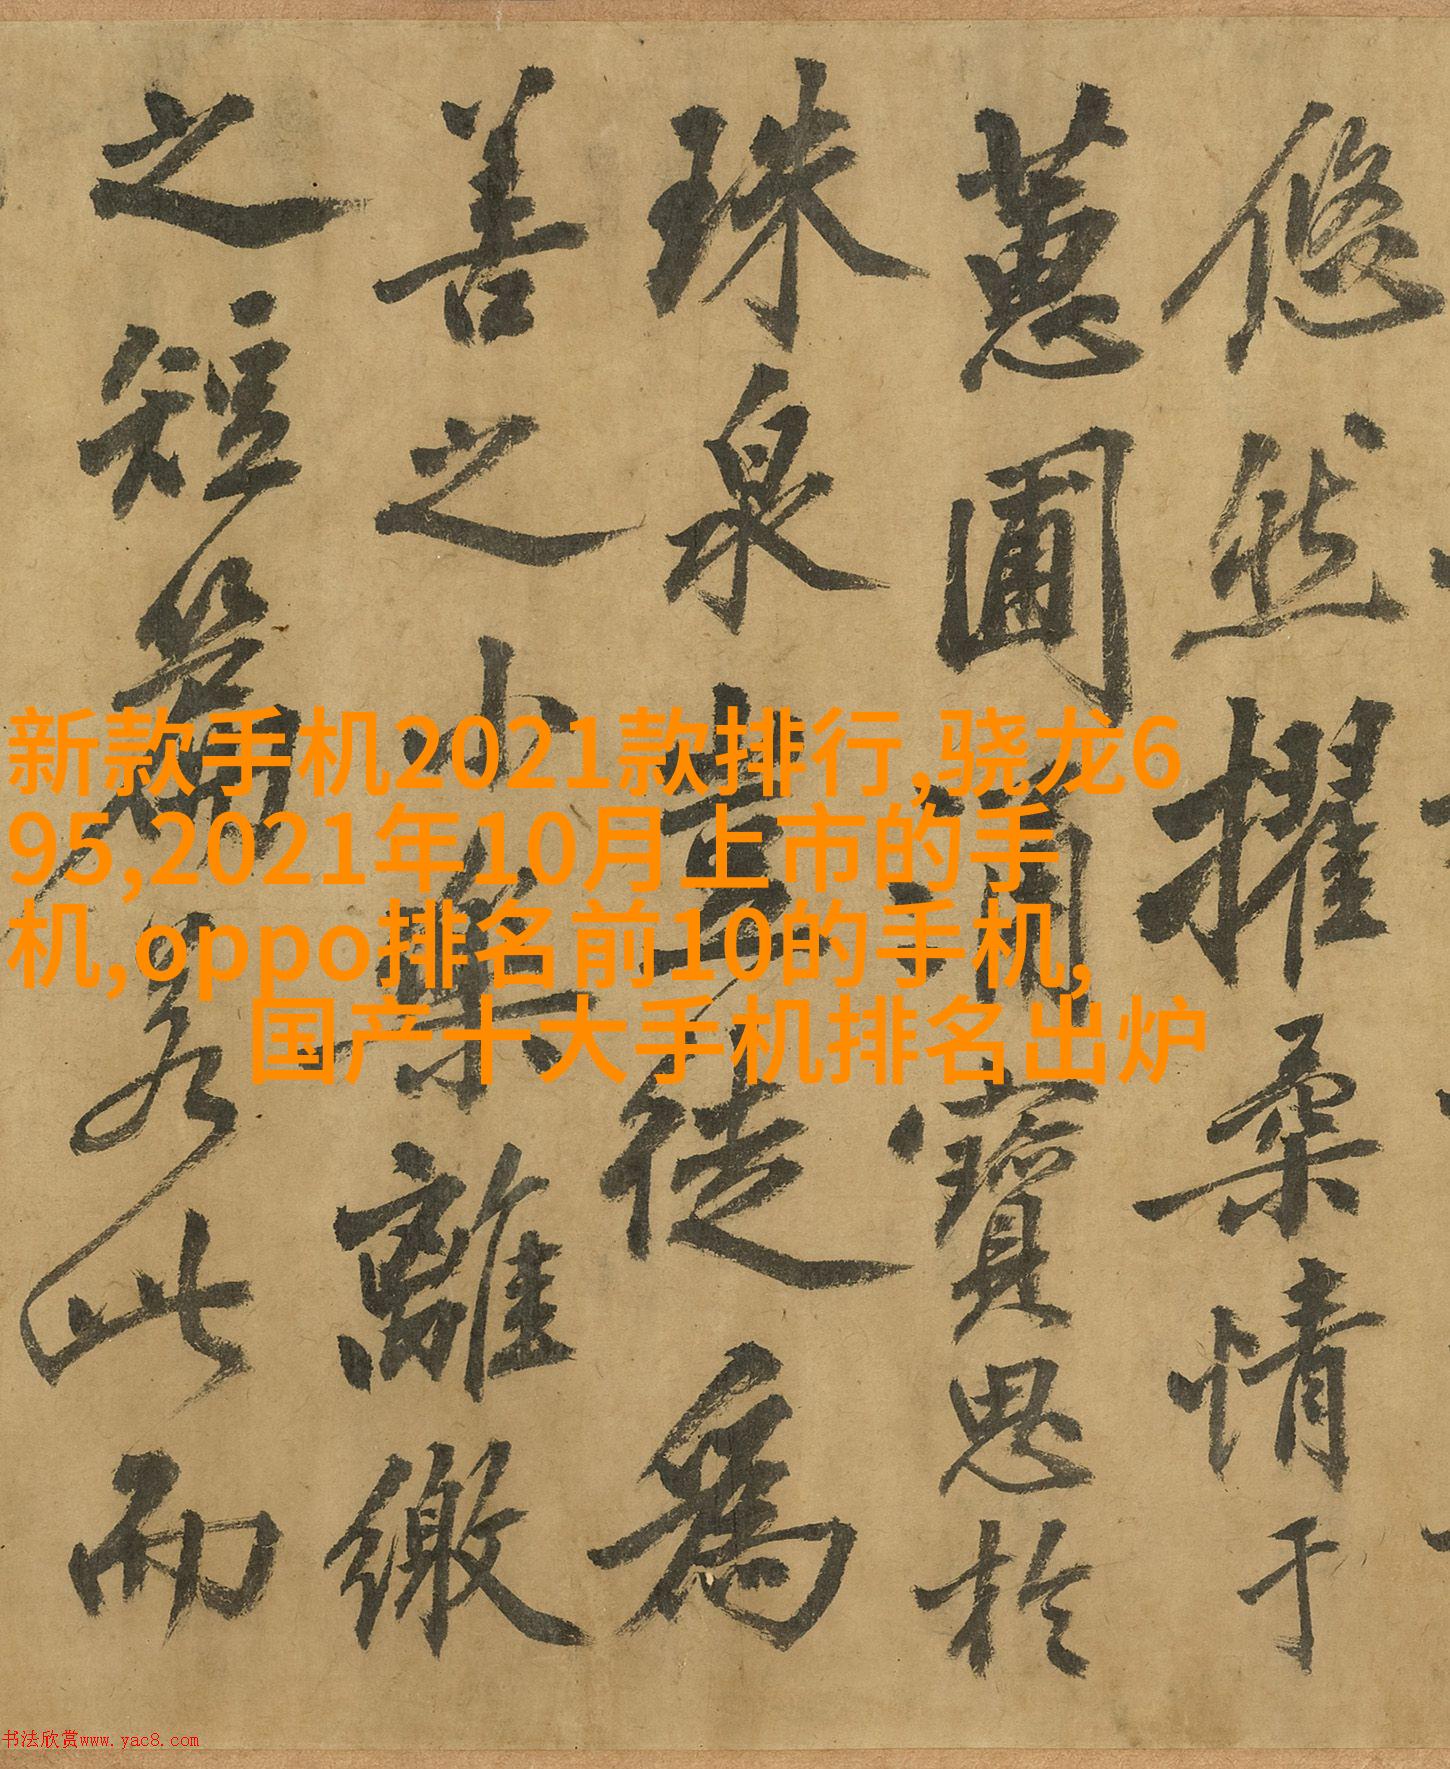 悠然擢柔情于
蕙圃涌寶思於
珠泉豈徒為
善之小樂離繳
之短篇若此而
新款手机2021款排行,骁龙6
95,2021年10月上市的手
机,oppo排名前10的手机,
国产十大手机排名出炉
书法欣赏www.yac8.com